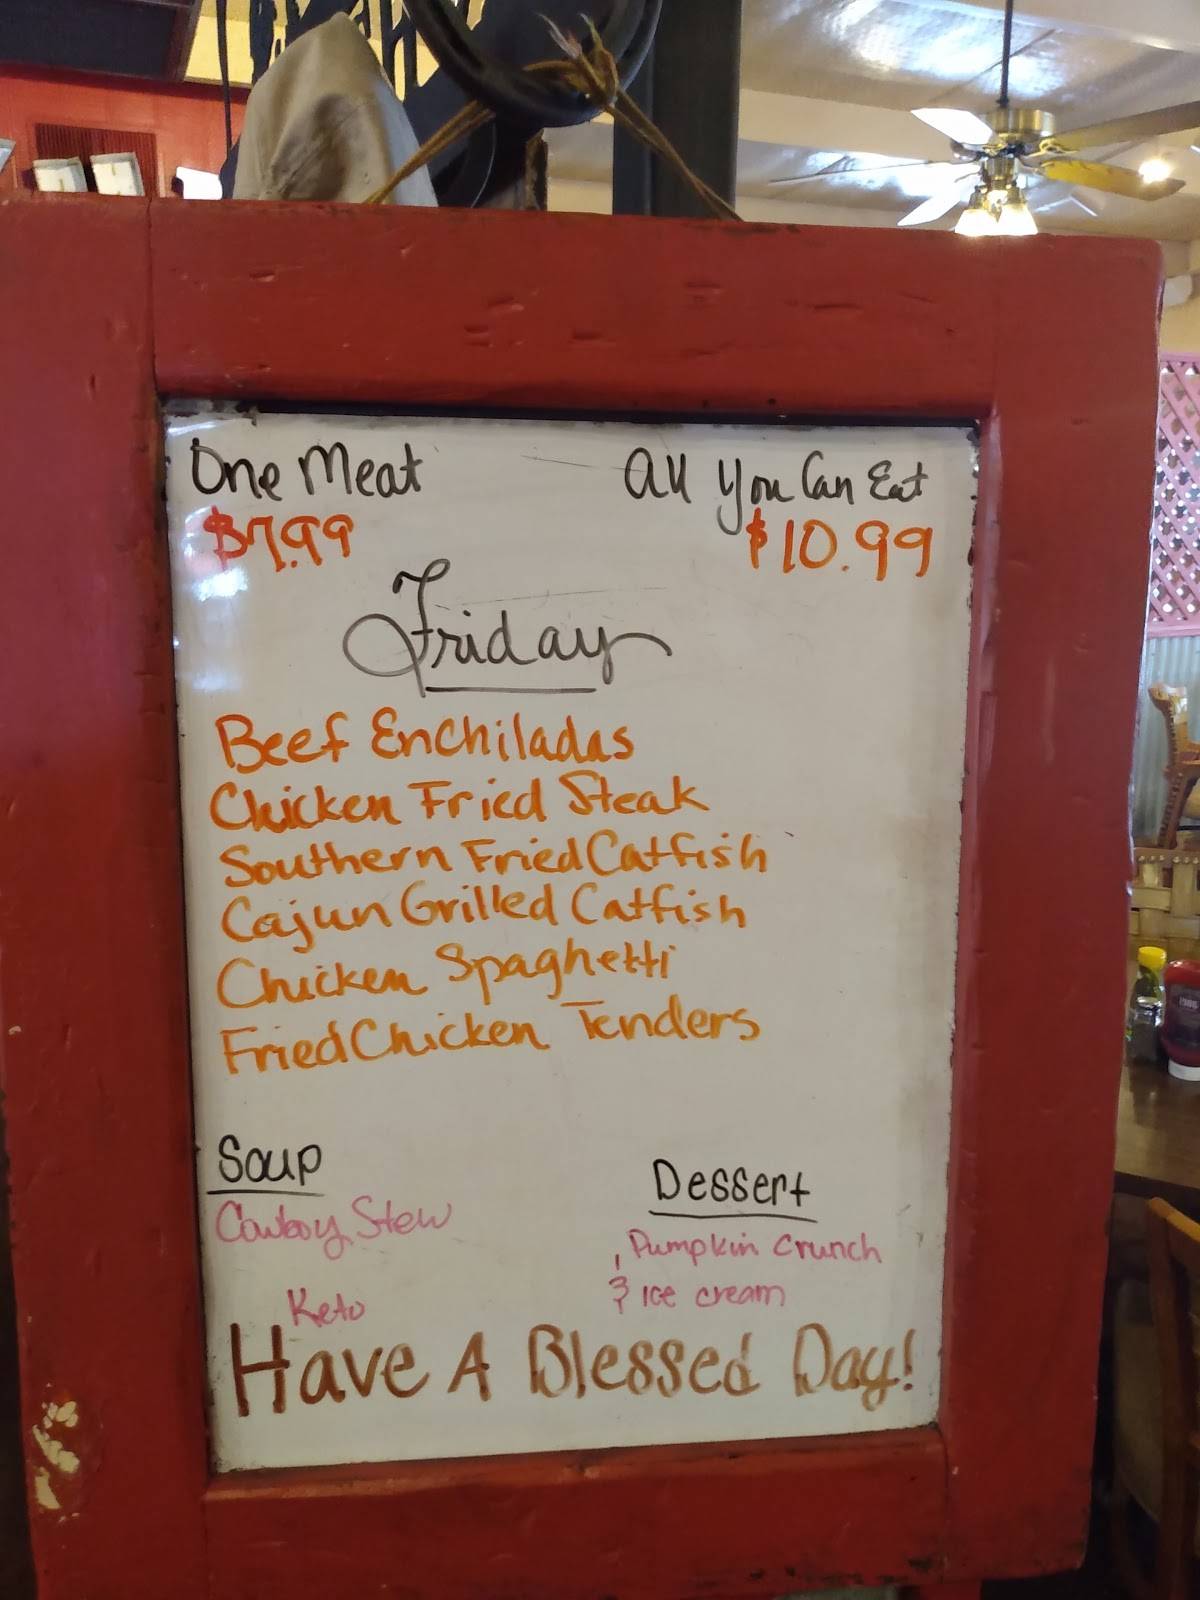 One Meat
$7.99
All You Can Eat
$10.99
Friday
Beef Enchiladas
Chicken Fried Steak
Southern Fried Catfish
Cajun Grilled Catfish
Chicken Spaghetti
Fried Chicken Tenders
Soup
Cowboy Stew
Keto
Dessert
Pumpkin Crunch
& Ice cream
Have A Blessed Day!